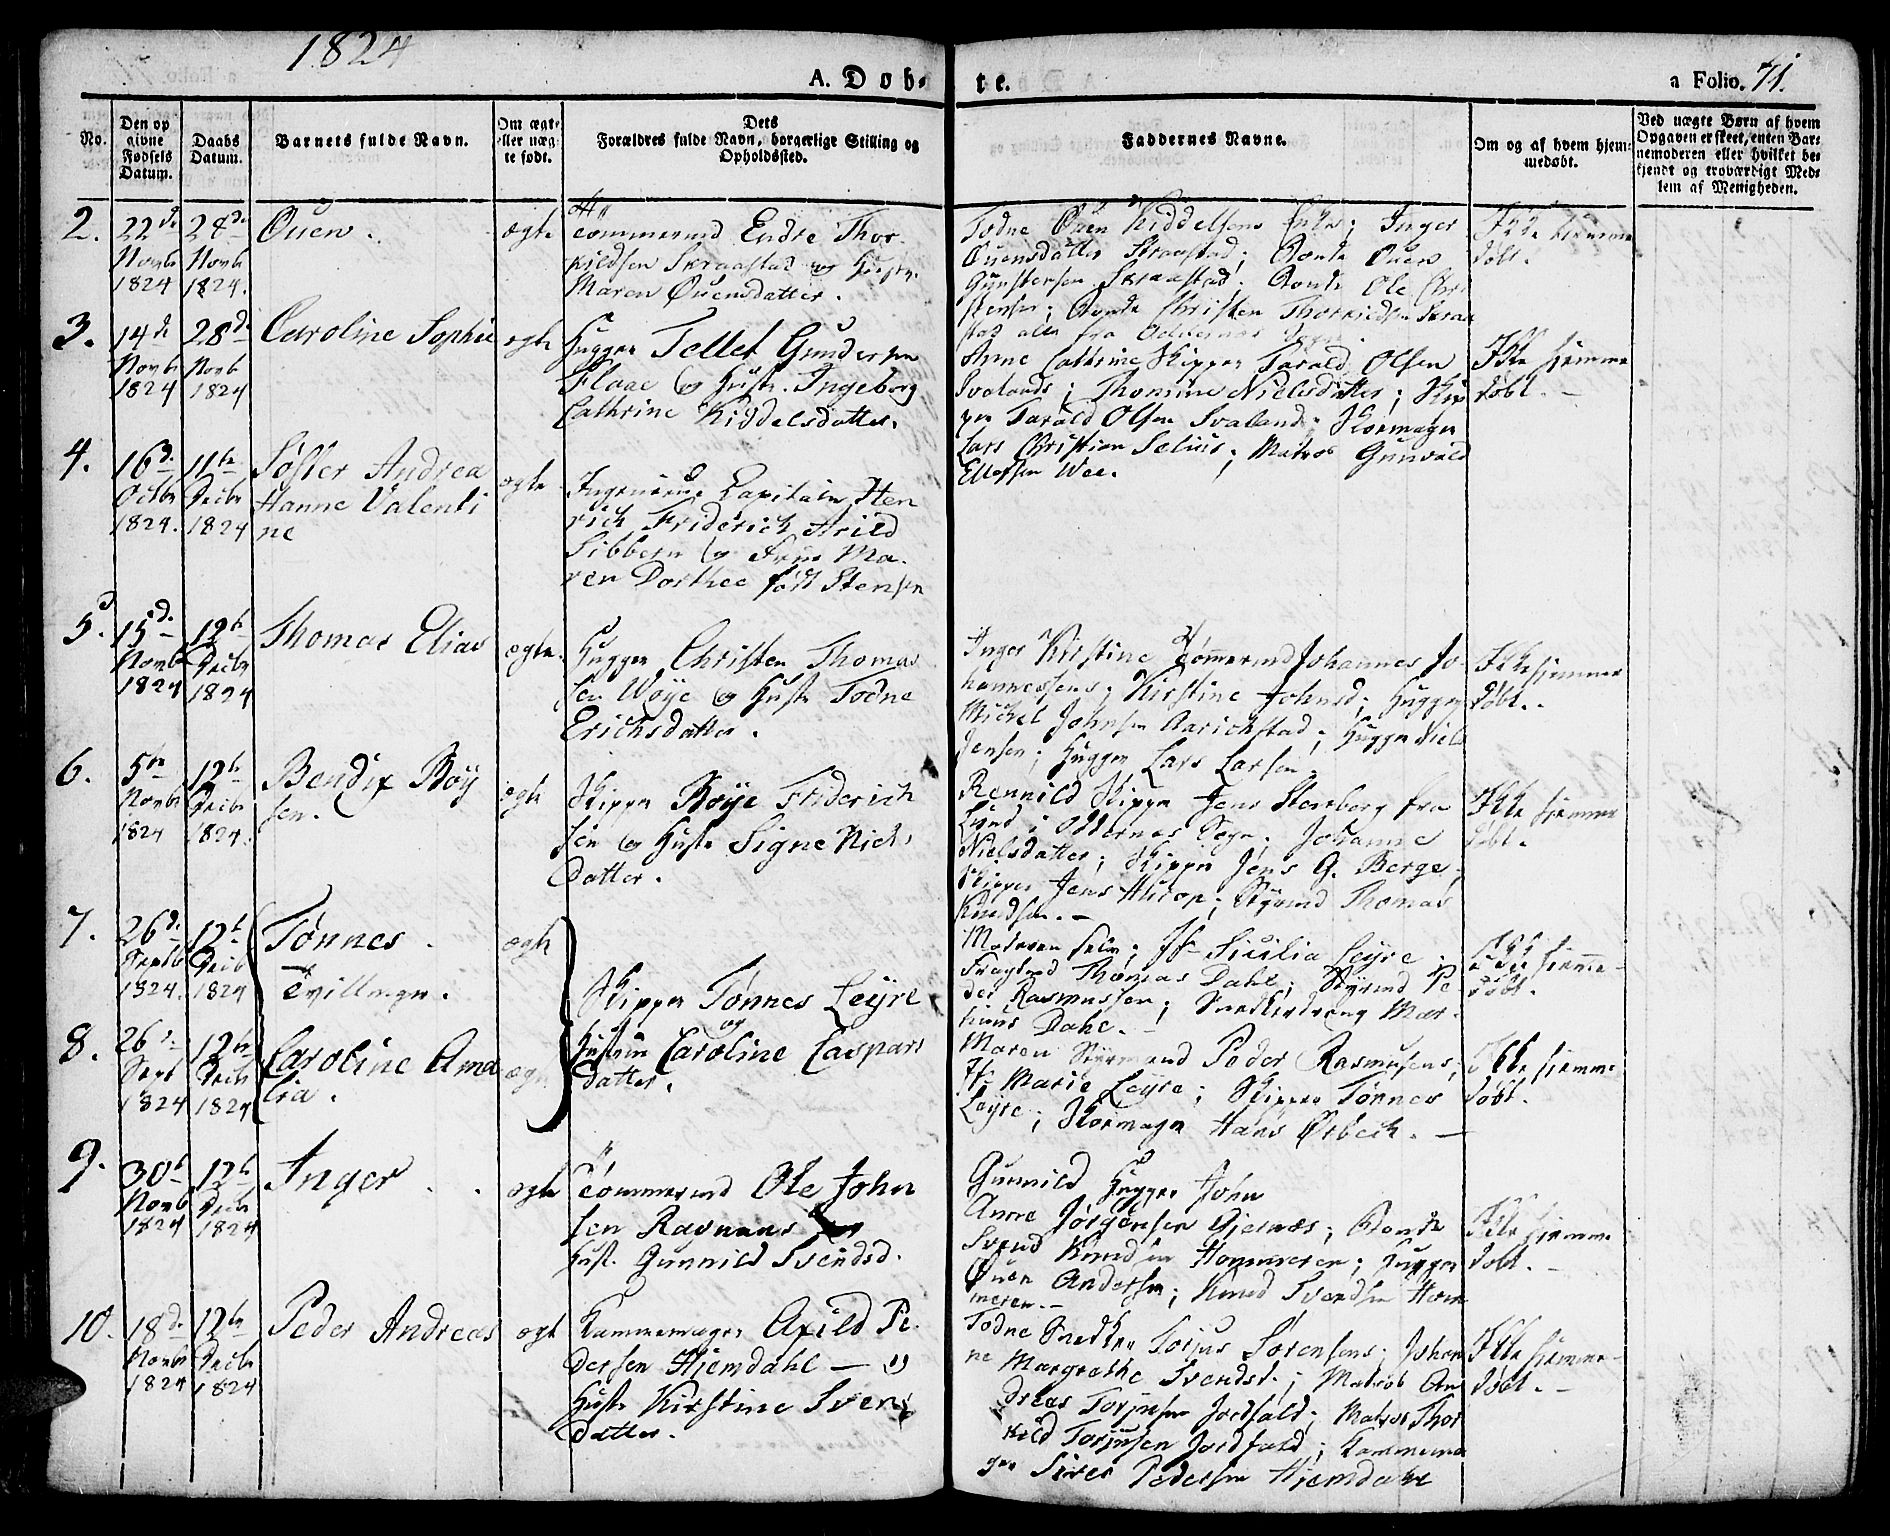 1824
A. Døb-
te.
a Folio. 71.
No.
Den op
givne
Fødsels
Datum.
Daabs
Datum.
Barnets fulde Navn.
Om ægt-
eller uæg-
te født.
Dets
Forældres fulde Navn, borgerlige Stilling og
Opholdssted.
Faddernes Navne.
Om og af hvem hjem-
medøbt.
Ved uægte Børn af hvem
Opgaven er skeet, enten Bar-
nemoderen eller hvilket be-
kjendt og troværdigt Med-
lem af Menigheden.
2.
22de
Novbr
1824
28de
Novbr
1824.
Ouen.
ægte
Tømmermd Endre Thor-
kildsen Skraastad og Hustr.
Maren Ouensdatter.
Todne Ouen Kiddelsens Enke; Inger
Ouensdatter Skraastad; Bonde Ouen
Gunstensen Skraastad; Bonde Ole Chri-
stensen; Bonde Christen Thorkildsen Skraa
stad alle fra Oddernes Sogn.
Ikke hjemme
døbt.
3.
14de
Novbr
1824
28de
Novbr
1824
Caroline Sophie
ægte
Hugger Tellef Gundersen
Flaae og Hustr. Ingeborg
Cathrine Kiddelsdatter.
Anne Cathrine Skipper Tarald Olsen
Svalands; Thomine Nielsdatter; Skip
per Tarald Olsen Svaland; Skomager
Lars Christian Selius; Matros Gunvald
Ellefsen Wee.
Ikke hjemme
døbt.
4.
16de
Octbr
1824.
11te
Decbr
1824
Søster Andrea
Hanne Valenti
ne
ægte
Ingenieur Capitain Hen
rich Friderich Arild
Sibbern og Frue Ma-
ren Dorthee født Stensen
5.
15de
Novbr
1824
12te
Decbr
1824
Thomas Elias
ægte.
Hugger Christen Thomas
sen Woye og Hustr Todne
Erichsdatter.
Inger Kirstine Tømmermd Johannes Jo-
hannessens; Kirstine Johnsd; Hugger
Michel Johnsen Aarickstad; Hugger Niels
Jensen; Hugger Lars Larsen.
Ikke hjemme
døbt.
6.
5te
Novbr
1824
12te
Decbr
1824.
Bendix Boy
sen.
ægte
Skipper Boye Friderich
sen og Hustr Signe Niels
Datter.
Rennild Skipper Jens Stenberg fra
Lund i Oddernes Sogn; Johanne
Nielsdatter; Skipper Jens G. Berge;
Skipper Jens Hurop; Styrmd Thomas
Knudsen.
Ikke hjemme
døbt.
7.
26de
Septb
1824.
12te
Decb
1824
Tønnes
Tvillinger.
ægte
Skipper Tønnes Leyre
og
Hustrue Caroline Caspars
datter.
Moderen selv; Jfr Sicilia Leyre;
Fragtmd Thomas Dahl; Styrmd Pe-
der Rasmussen; Snedkerdreng Mar-
kuus Dahl.
Ikke hjemme-
døbt.
8.
26de
Sept
1824
12te
Decbr
1824
Caroline Ama
lia.
ægte
Maren Styrmand Peder Rasmusens;
Jfr Marie Leyre; Skipper Tønnes
Leyre; Skomager Hans Ørbeck.
Ikke hjemme
døbt.
9.
30te
Novb
1824
12te
Decbr
1824
Inger
ægte
Tømmermd Ole John
sen Ravnaas og
Hust. Gunnild Svendsd.
Gunnild Hugger John
Anne Jørgensen Gjernæs; Bonde
Svend Knudsen Hommeren; Hugger
Ouen Andersen; Knud Svendsen Hom
meren.
Ikke hjemme
døbt.
10.
18de
Novbr
1824
12te
Decbr
1824
Peder Andreas
ægt
Kammemager Axild Pe-
dersen Hjemdahl og
Hustr Kirstine Svens
datter.
Todne Snedker Torjus Sørensens; Johan
ne Margrethe Svendsd.; Matros An
dreas Torjusen Jordfald; Matros Thor
kild Torjusen Jordfald; Kammema
ger Siver Pedersen Hjemdahl
Ikke hjemme-
døbt.